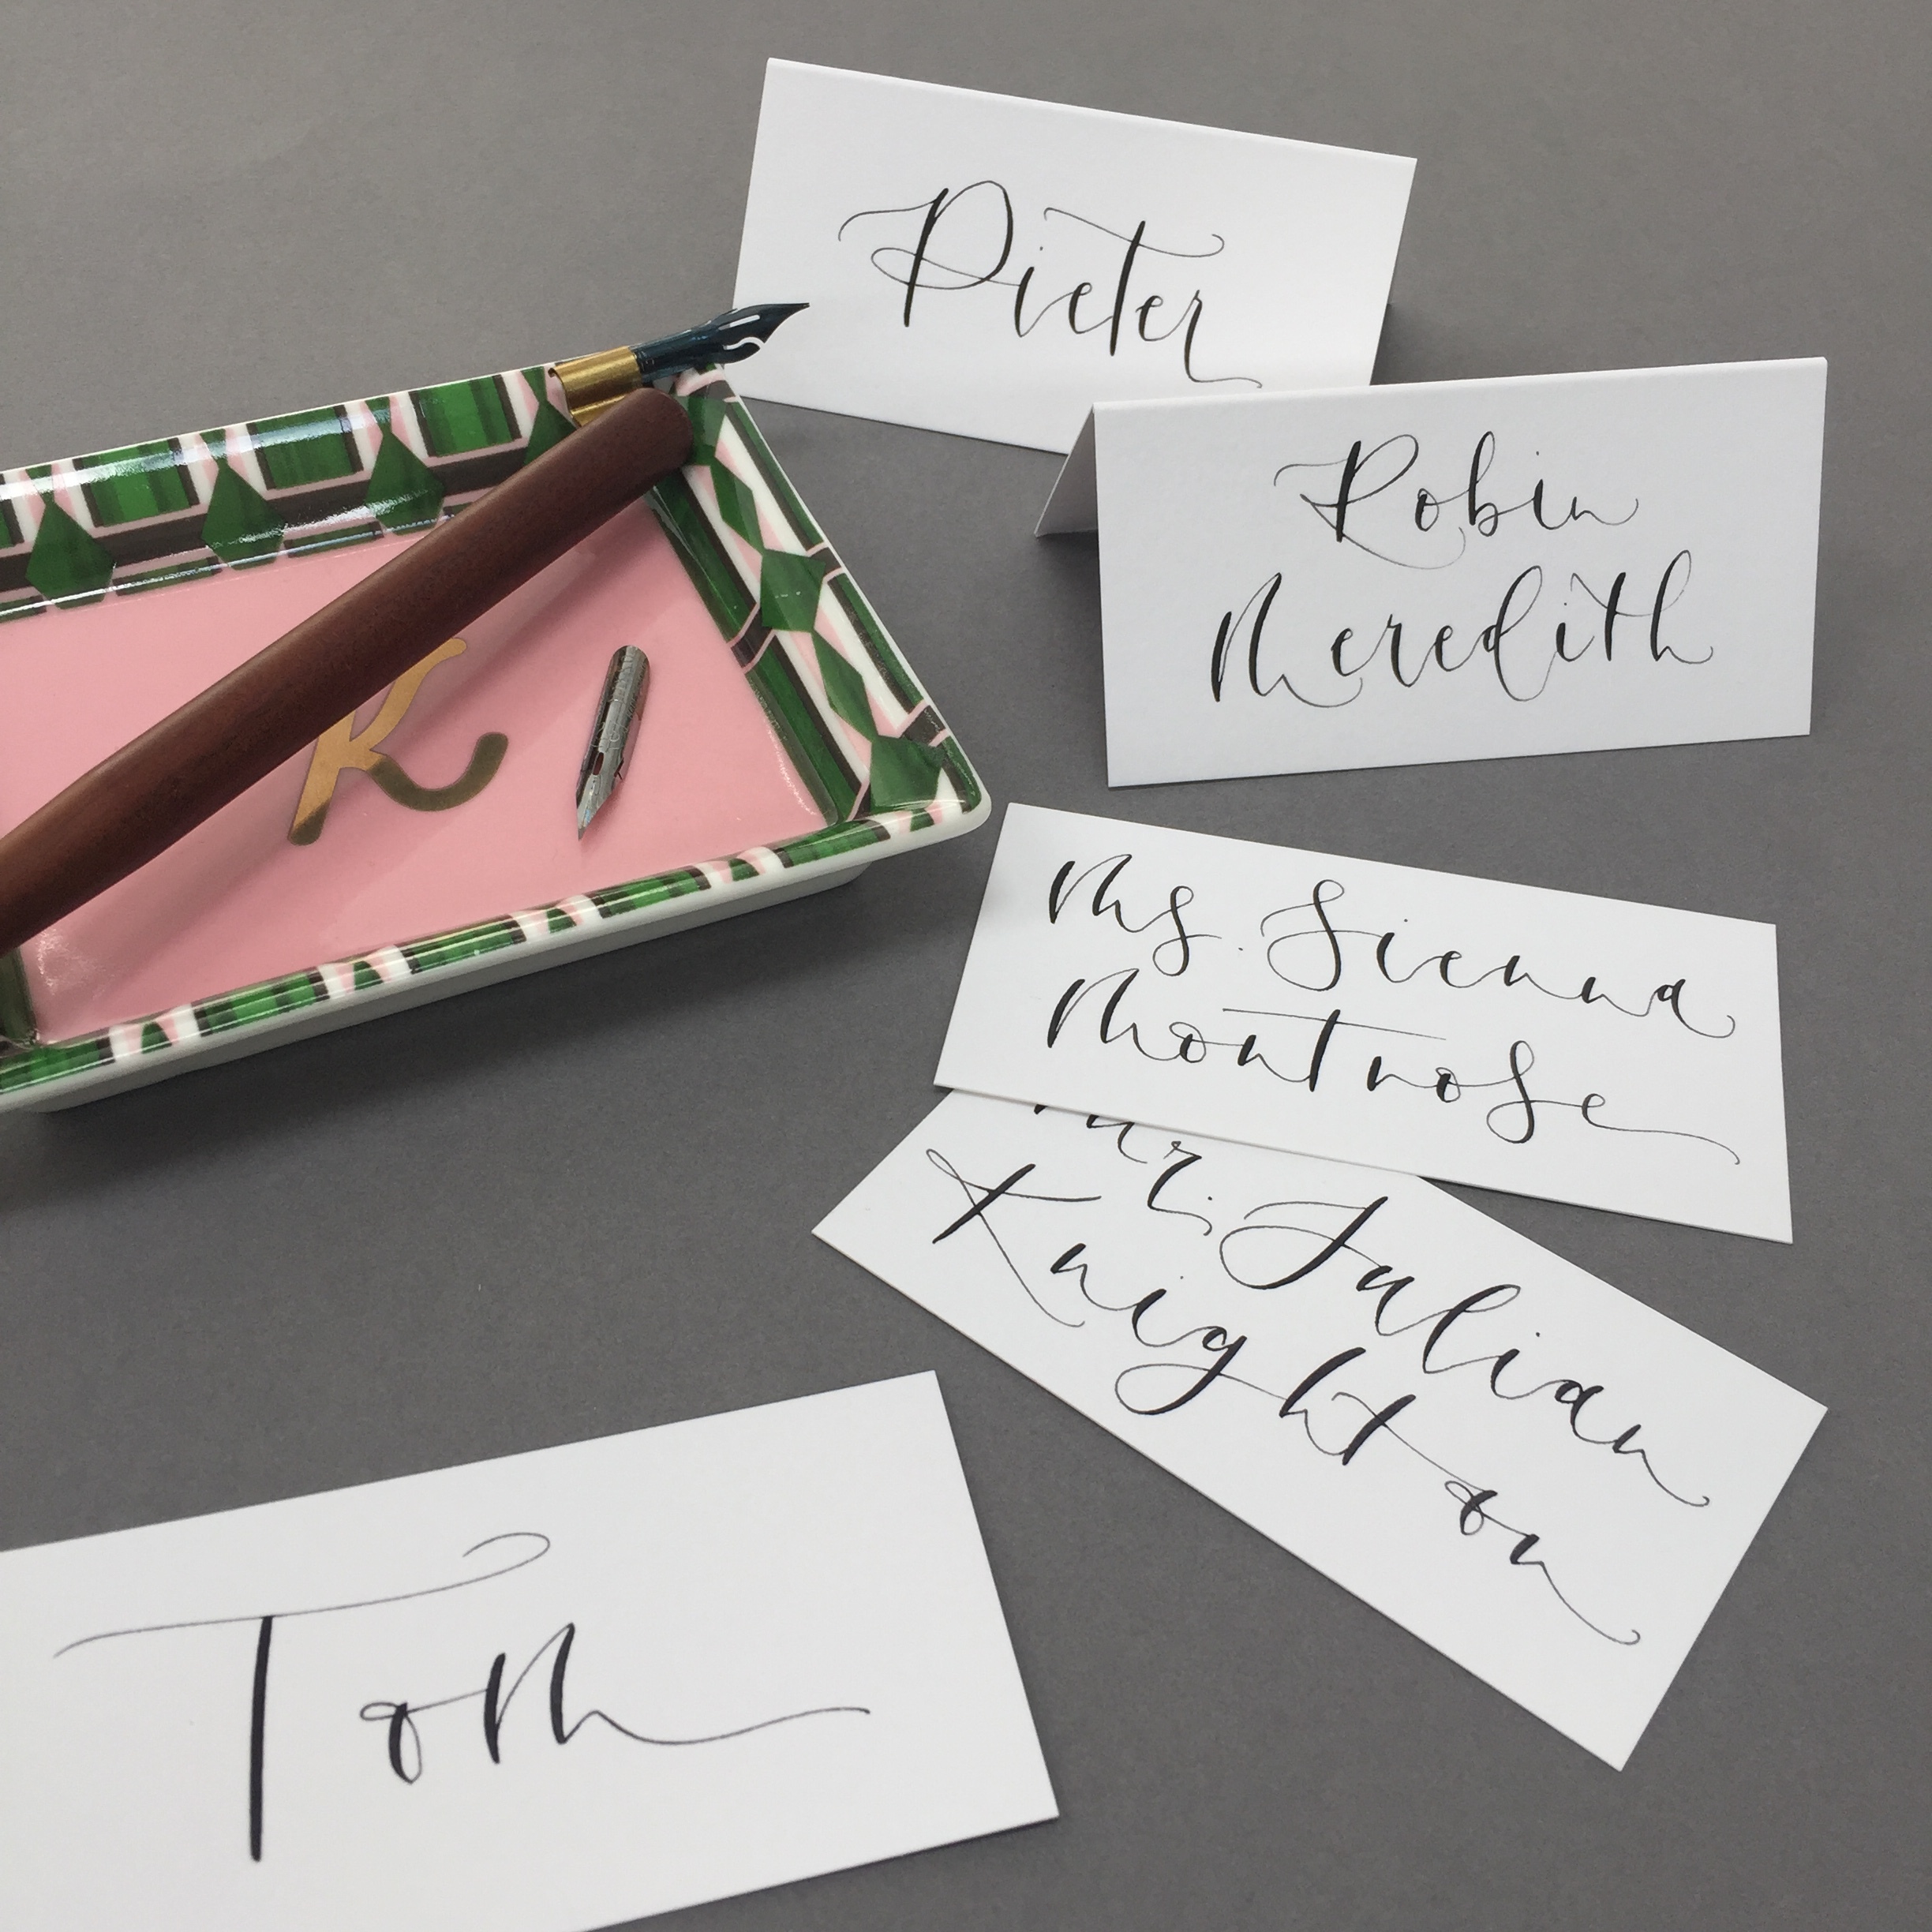 Pieter
Robin
Meredith
K
Ms. Sienna
Montrose
Mr. Julian
Knighton
Tom